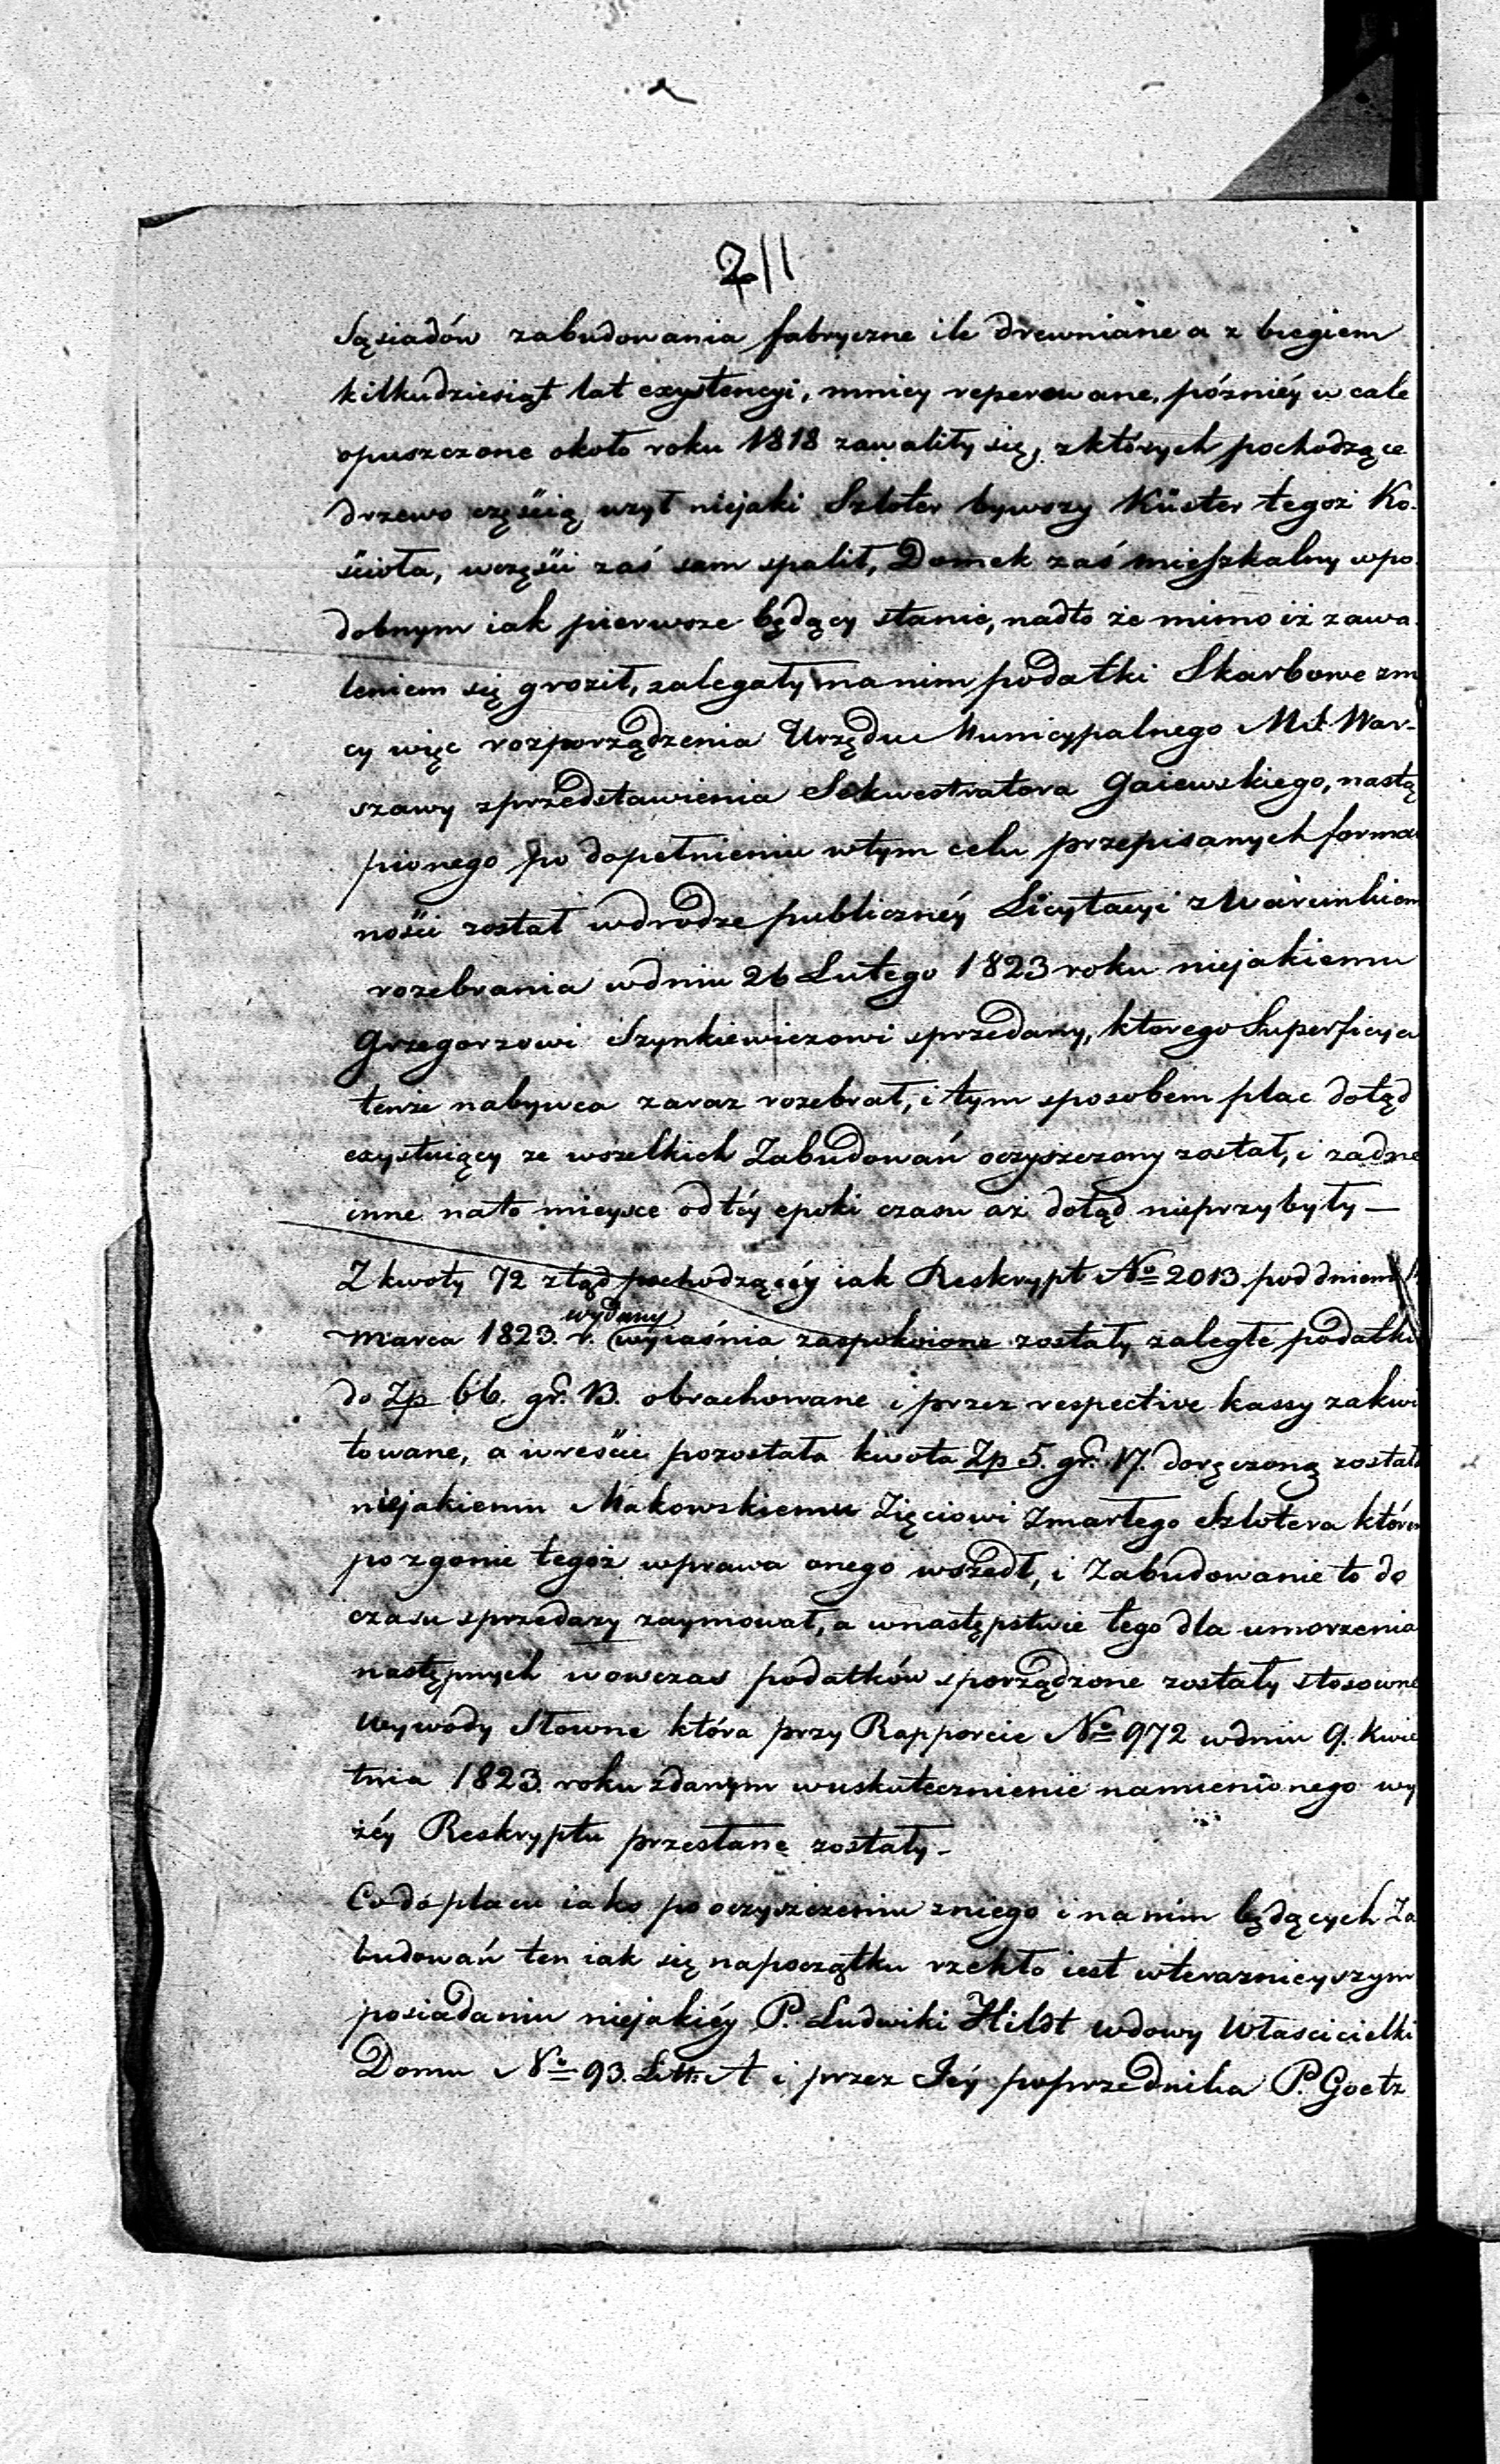 211
Sąsiadów zabudowania fabryczne ile drewniane a z biegiem
kilkudziesiąt lat exystencyi, mniey reperowane, pózniéy w cale
opuszczone około roku 1818 zawaliły się, z których pochodzące
drzewo częścią użył niejaki Szloter bywszy Küster tegoż Ko-
ścioła, w części zaś sam spalił, Domek zaś mieszkalny w po-
dobnym iak pierwsze będący stanie, nadto że mimo iż zawa-
leniem się groził, zalegały na nim podatki Skarbowe z m
cy więc rozporządzenia Urzędu Municypalnego M. S. War-
szawy z przedstawienia Sekwestratora Gaiewskiego, nastą
pionego po dopełnieniu w tym celu przepisanych formal
ności został w drodze publicznéy Licytacyi z Warunkiem
rozebrania w dniu 26 Lutego 1823 roku niejakiemu
Grzegorzowi Szynkiewiczowi sprzedany, ktorego Superficya
tenże nabywca zaraz rozebrał, i tym sposobem plac dotąd
exystuiący ze wszelkich Zabudowań oczyszczony został, i zadne
inne na to mieysce od téy epoki czasu aż dotąd nieprzybyły —
Z kwoty 72 ztąd pochodzącéy iak Reskrypt No 2013 pod dniem
wydany
Marca 1823. r. (wyiaśnia zaspokoione zostały zaległe podatki
do Zp 66. gr. 13. obrachowane i przez respective kassy zakwi
towane, a wreście pozostała kwota Zp 5. gr. 17. doręczoną została
niejakiemu Makowskiemu Zięciowi Zmarłego Szlotera który
po zgonie tegoż w prawa onego wszedł, i Zabudowanie to do
czasu sprzedaży zaymował, a w następstwie tego dla umorzenia
następnych wowczas podatków sporządzone zostały stosowne
Wywody Słowne która przy Rapporcie No 972 w dniu 9. Kwie
tnia 1823. roku zdanym w uskutecznienie namienionego wy
żéy Reskryptu przesłane zostały -
Co do placu iako po oczyszczeniu z niego i na nim będących Za
budowań ten iak się na początku rzekło iest w teraznieyszym
posiadaniu niejakiéy P. Ludwiki Hildt wdowy Właścicielki
Domu No 93. Litt: A i przez Jéy poprzednika P. Goetz